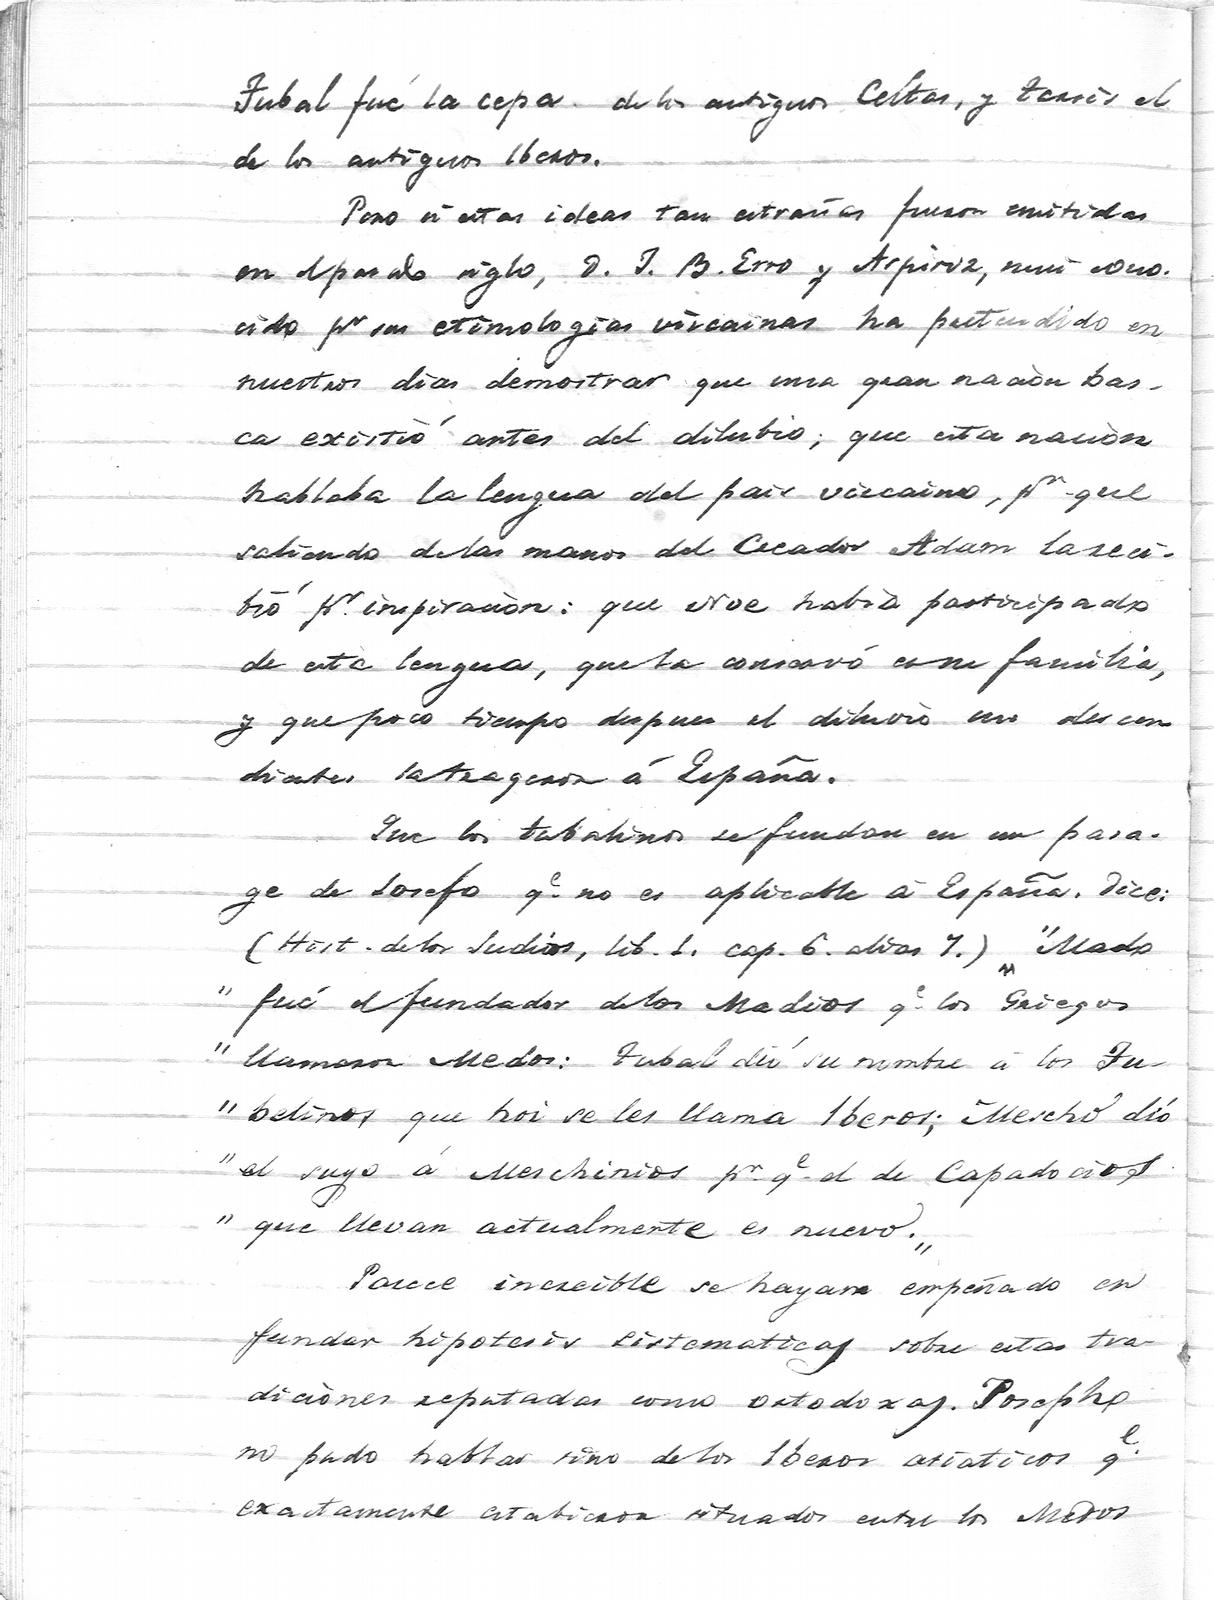 Tubal fué la cepa de los antiguos Celtas, y Tarsis el
de los antiguos Iberos.
Pero si estas ideas tan estrañas fueron emitidas
en el pasado siglo, D. J. B. Erro y Aspiroz, mui cono-
cido pr sus etimologias viscainas ha pretendido en
nuestros dias demostrar que una gran nacion bas-
ca existió antes del dilubio; que esta nacion
hablaba la lengua del pais viscaino, pr que
saliendo de las manos del Creador Adam la reci-
bió pr inspiracion: que Noe habia participado
de esta lengua, que la conservó en su familia,
y que poco tiempo despues el diluvio sus descen
dientes la trageron á España.
Que los tubalinos se fundan en un pasa-
ge de Josefo qe no es aplicable á España. Dice:
(Hist. de los Judios, lib. 1. cap. 6. alias 7.) "Mado
" fué el fundador de los Madios qe los Griegos
" llamaron Medos: Tubal dió su nombre á los Tu-
" belinos que hoi se les llama Iberos; Meschó dió
" el suyo á Meschinios pr qe el de Capadocios
" que llevan actualmente es nuevo."
Parece increible se hayan empeñado en
fundar hipotesis sistematicas sobre estas tra-
diciones reputadas como ortodoxas. Josepho
no pudo hablar sino de los Iberos asiaticos qe
exactamente estabieron situados entre los Medos